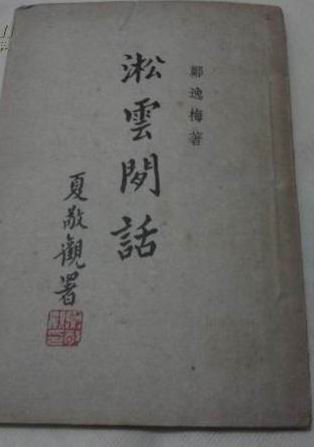 鄭逸梅著
淞雲閒話
夏敬觀署